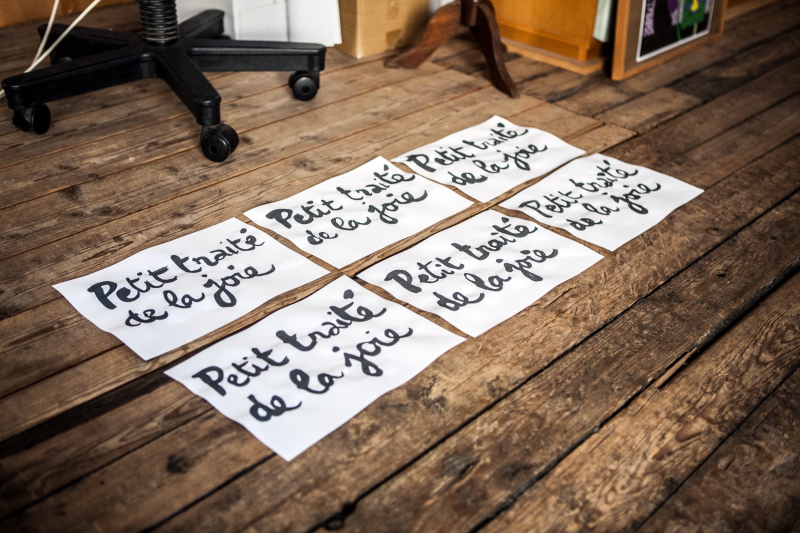 Petit traité
de la joie
Petit traité
de la joie
Petit traité
de la joie
Petit traité
de la joie
Petit traité
de la joie
Petit traité
de la joie